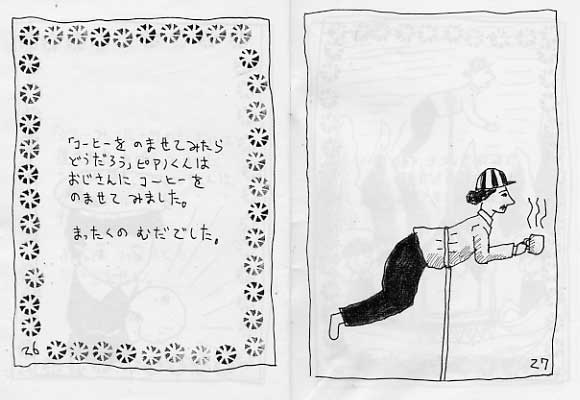 「コーヒーを のませてみたら
どうだろう」ピアノくんは
おじさんに コーヒーを
のませて みました。
まったくの むだでした。
26
27